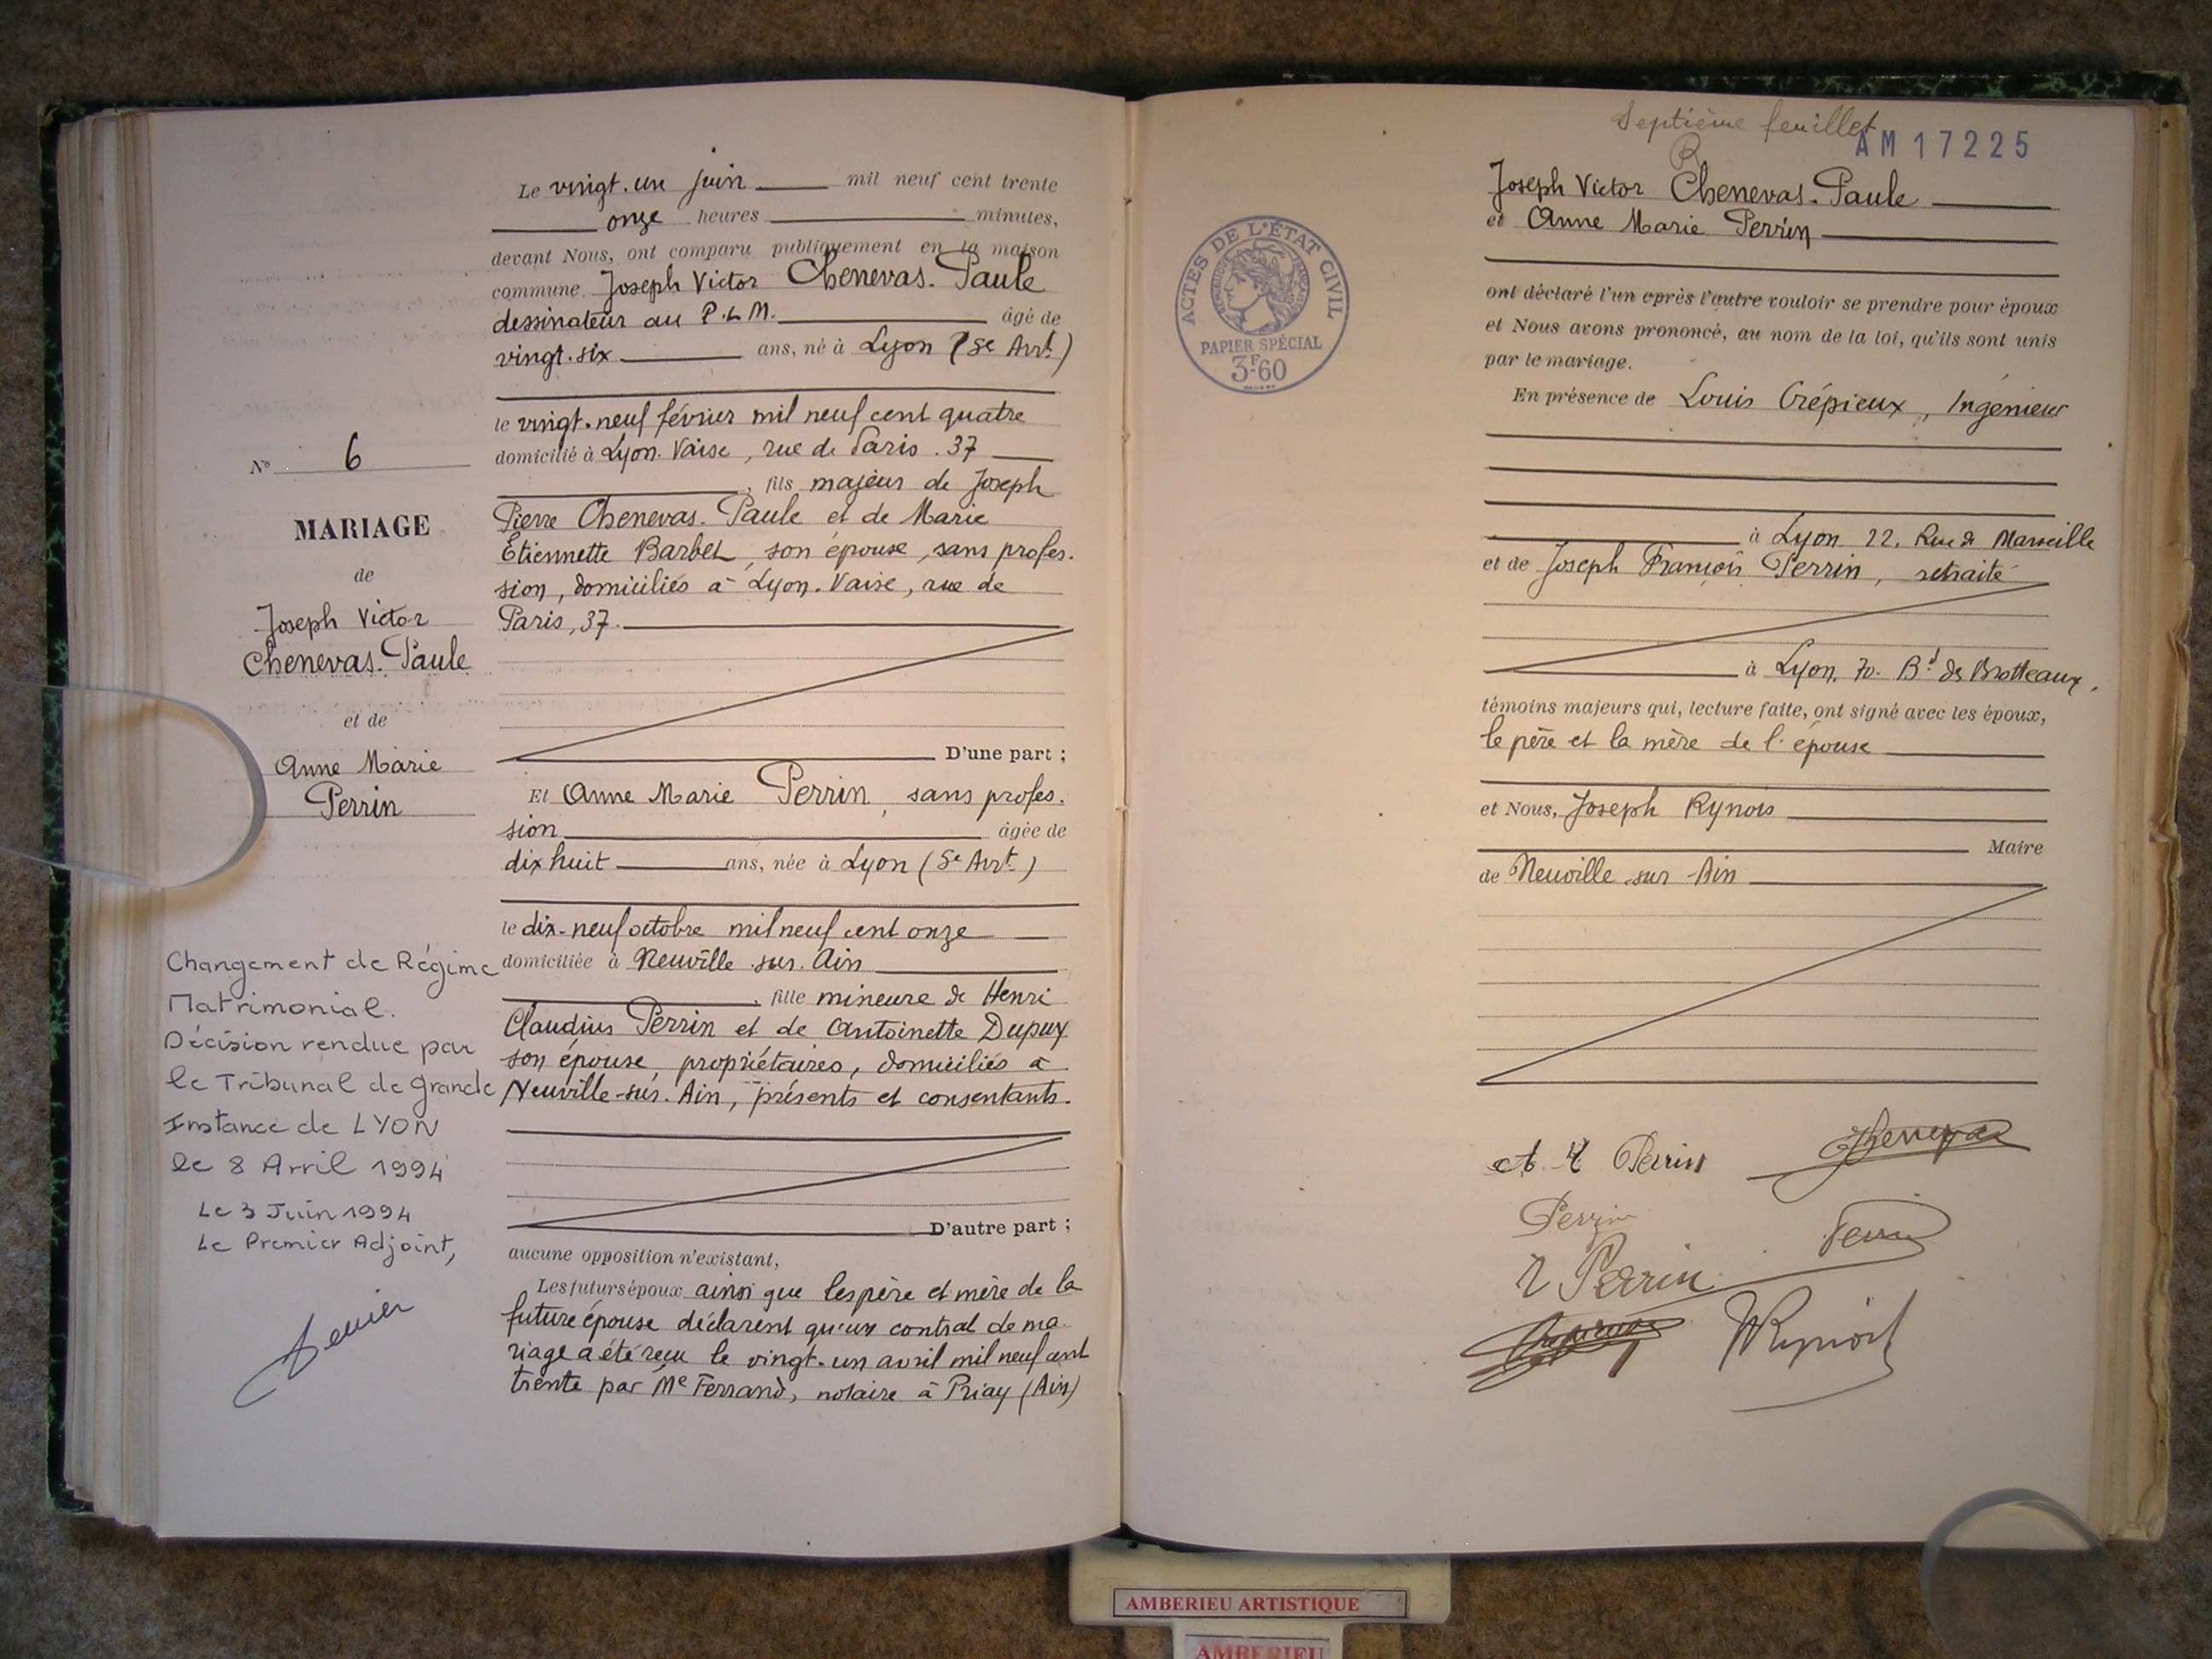 Le vingt-un juin mil neuf cent trente
onze heures minutes,
devant Nous, ont comparu publiquement en la maison
commune Joseph Victor Chenevas-Paule
dessinateur au P.L.M. âgé de
vingt-six ans, né à Lyon (5e Arrt)
le vingt-neuf février mil neuf cent quatre
domicilié à Lyon-Vaise, rue de Paris. 37
, fils majeur de Joseph
Pierre Chenevas-Paule et de Marie
Etiennette Barbet, son épouse, sans profes-
sion, domiciliés à Lyon-Vaise, rue de
Paris, 37.
D'une part ;
Et Anne Marie Perrin, sans profes-
sion âgée de
dix huit ans, née à Lyon (5e Arrt)
le dix-neuf octobre mil neuf cent onze
domiciliée à Neuville-sur-Ain
, fille mineure de Henri
Claudius Perrin et de Antoinette Dupuy
son épouse, propriétaires, domiciliés à
Neuville-sur-Ain, présents et consentants.
D'autre part ;
aucune opposition n'existant,
Les futurs époux ainsi que les père et mère de la
future épouse déclarent qu'un contrat de ma-
riage a été reçu le vingt-un avril mil neuf cent
trente par Me Ferrand, notaire à Priay (Ain)
No 6
MARIAGE
de
Joseph Victor
Chenevas-Paule
et de
Anne Marie
Perrin
Changement de Régime
Matrimonial.
Décision rendue par
le Tribunal de Grande
Instance de LYON
le 8 Avril 1994
Le 3 Juin 1994
Le Premier Adjoint,
Septième feuillet
AM 17225
ACTES DE L'ÉTAT CIVIL
RÉPUBLIQUE FRANÇAISE
PAPIER SPÉCIAL
3F60
Joseph Victor Chenevas-Paule
et Anne Marie Perrin
ont déclaré l'un après l'autre vouloir se prendre pour époux
et Nous avons prononcé, au nom de la loi, qu'ils sont unis
par le mariage.
En présence de Louis Crépieux, Ingénieur
à Lyon 22, Rue de Marseille
et de Joseph François Perrin, retraité
à Lyon, 70. Bd des Brotteaux,
témoins majeurs qui, lecture faite, ont signé avec les époux,
le père et la mère de l'épouse
et Nous, Joseph Rynois
Maire
de Neuville-sur-Ain
A M Perrin
Perrin
Perrin
Perrin
AMBERIEU ARTISTIQUE
AMBERIEU